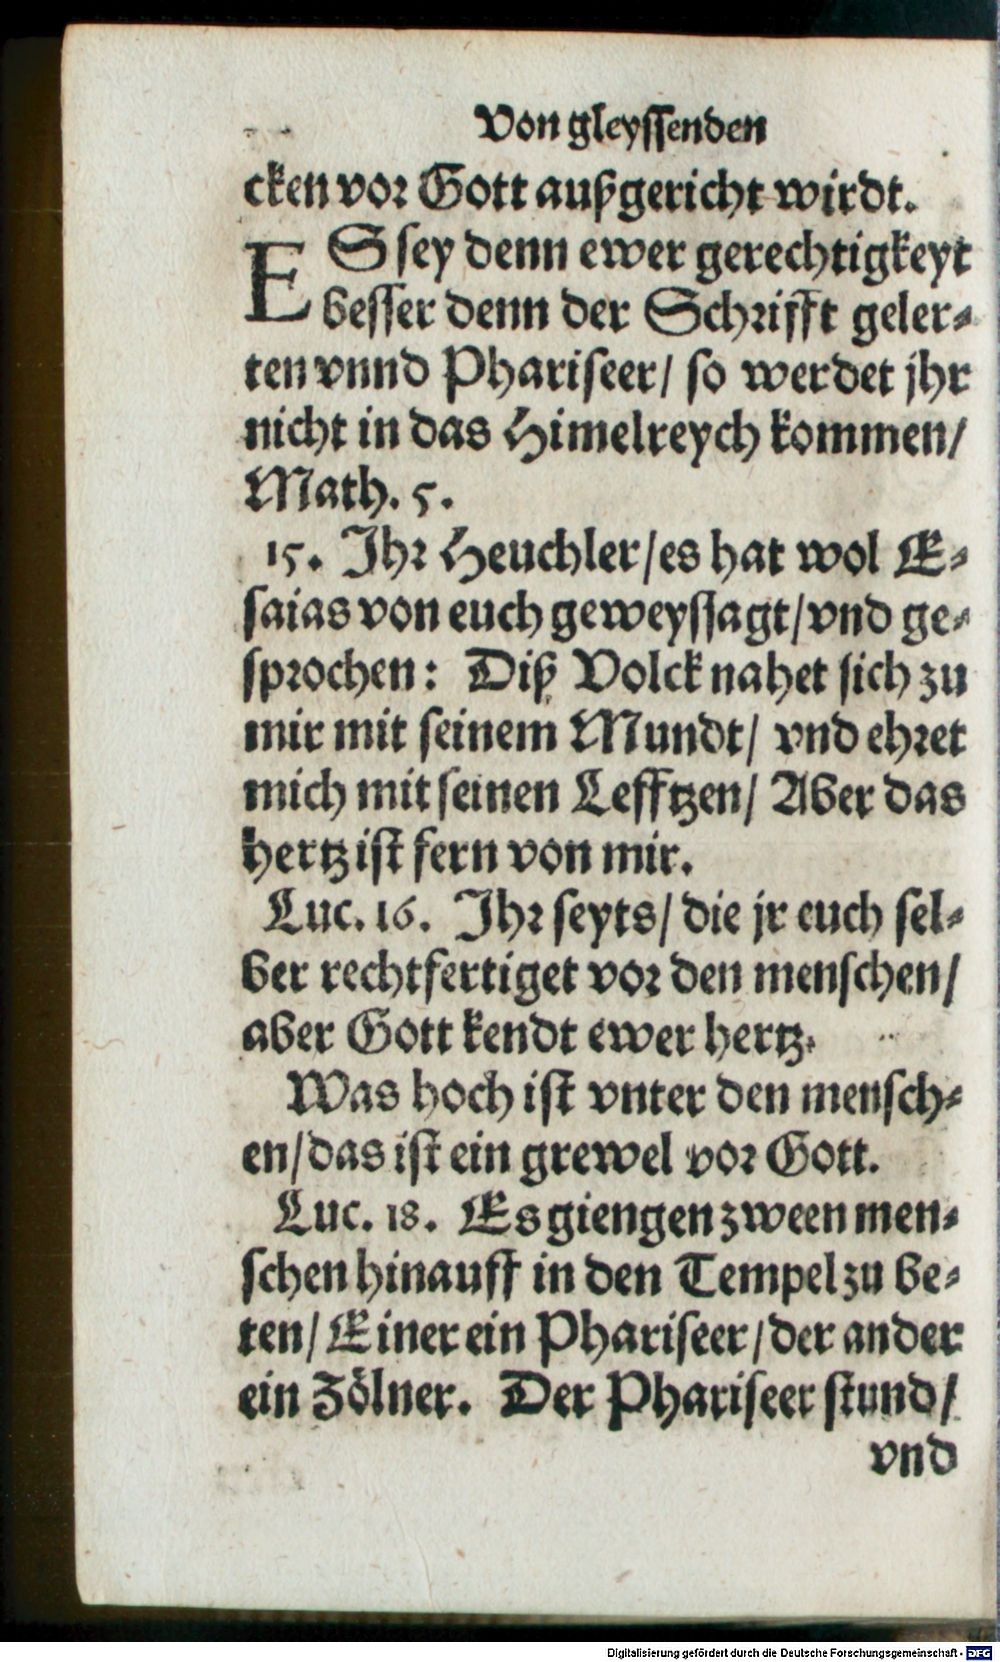 Von gleyssenden
cken vor Gott außgericht wirdt.
ES sey denn ewer gerechtigkeyt
besser denn der Schrifft geler⸗
ten vnnd Phariseer/ so werdet jhr
nicht in das Himelreych kommen/
Math. 5.
15. Jhr Heuchler/es hat wol E⸗
saias von euch geweyssagt/vnd ge⸗
sprochen: Diß Volck nahet sich zu
mir mit seinem Mundt/ vnd ehret
mich mit seinen Lefftzen/ Aber das
hertz ist fern von mir.
Luc. 16. Jhr seyts/ die jr euch sel⸗
ber rechtfertiget vor den menschen/
aber Gott kendt ewer hertz.
Was hoch ist vnter den mensch⸗
en/das ist ein grewel vor Gott.
Luc. 18. Es giengen zween men⸗
schen hinauff in den Tempel zu be⸗
ten/ Einer ein Phariseer/der ander
ein Zölner. Der Phariseer stund/
vnd
Digitalisierung gefördert durch die Deutsche Forschungsgemeinschaft - DFG